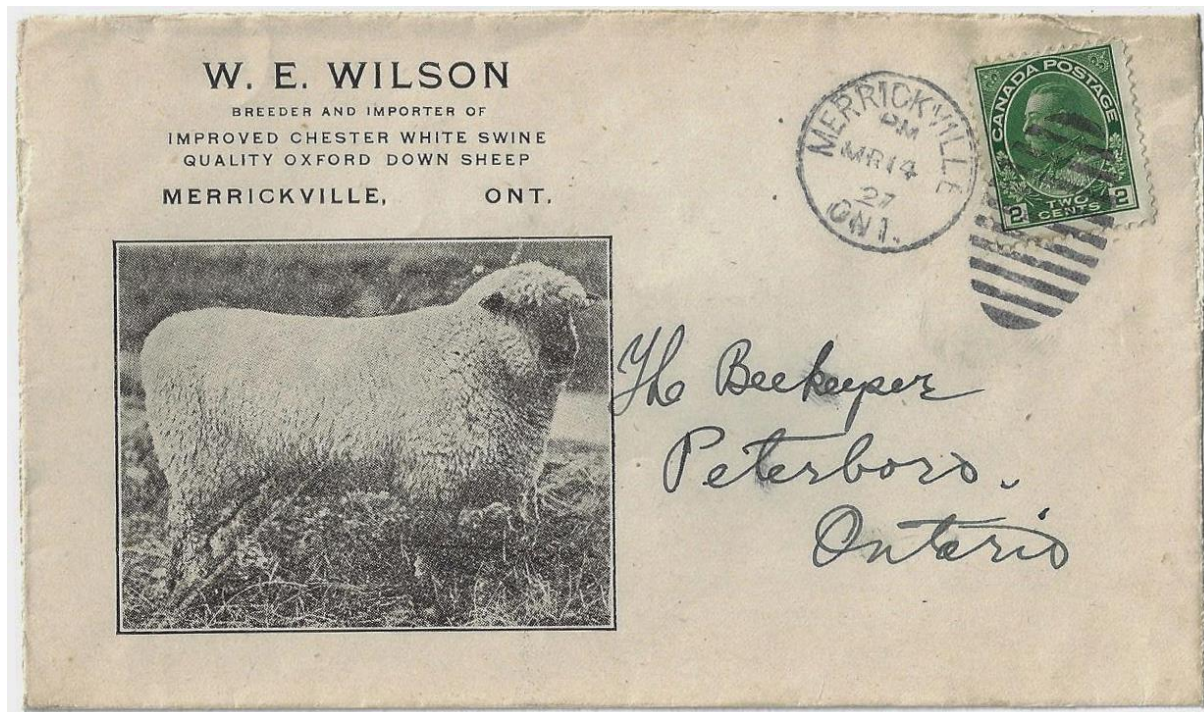 W. E. WILSON
BREEDER AND IMPORTER OF
IMPROVED CHESTER WHITE SWINE
QUALITY OXFORD DOWN SHEEP
MERRICKVILLE, ONT.
MERRICKVILLE
PM
MR 14
27
ONT.
CANADA POSTAGE
2 TWO CENTS 2
The Beekeeper
Peterboro.
Ontario